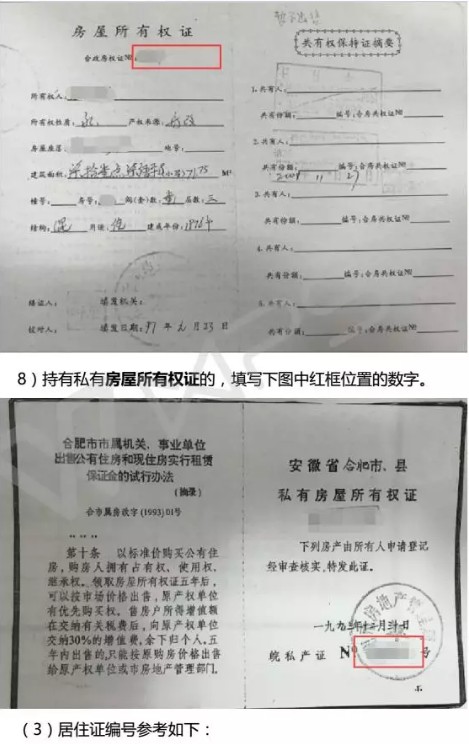 房屋所有权证
合政房权证№
所有权人：
所有权性质：私 产权来源：房改
房屋座落： 地号：
建筑面积： 71.75 M²
幢号： 房号： 间(套)数：壹 层数：三
结构：混 用途：住 建成年份：1976年
领证人： 填发机关：
校对人： 填发日期：97年元月23日
共有权保持证摘要
1.共有人：
共有份额： 编号：合房共权证№
2.共有人：
共有份额： 编号：合房共权证№
11 27
3.共有人：
共有份额： 编号：合房共权证№
4.共有人：
共有份额： 编号：合房共权证№
5.共有人：
共有份额： 编号：合房共权证№
8）持有私有房屋所有权证的，填写下图中红框位置的数字。
合肥市市属机关、事业单位
出售公有住房和现住房实行租赁
保证金的试行办法
（摘录）
合市属房改字(1993)01号
第十条 以标准价购买公有住
房，购房人拥有占有权、使用权、
继承权。领取房屋所有权证五年后，
可以按市场价格出售，原产权单位
有优先购买权。售房户所得增值额
在交纳有关税费后，向原产权单位
交纳30%的增值费，余下归个人，五
年内出售的，只能按原购房价格出售
给原产权单位或市房地产管理部门。
安徽省合肥市、县
私有房屋所有权证
下列房产由所有人申请登记
经审查核实，特发此证。
一九九三年十二月三十日
皖私产证 № 号
（3）居住证编号参考如下：